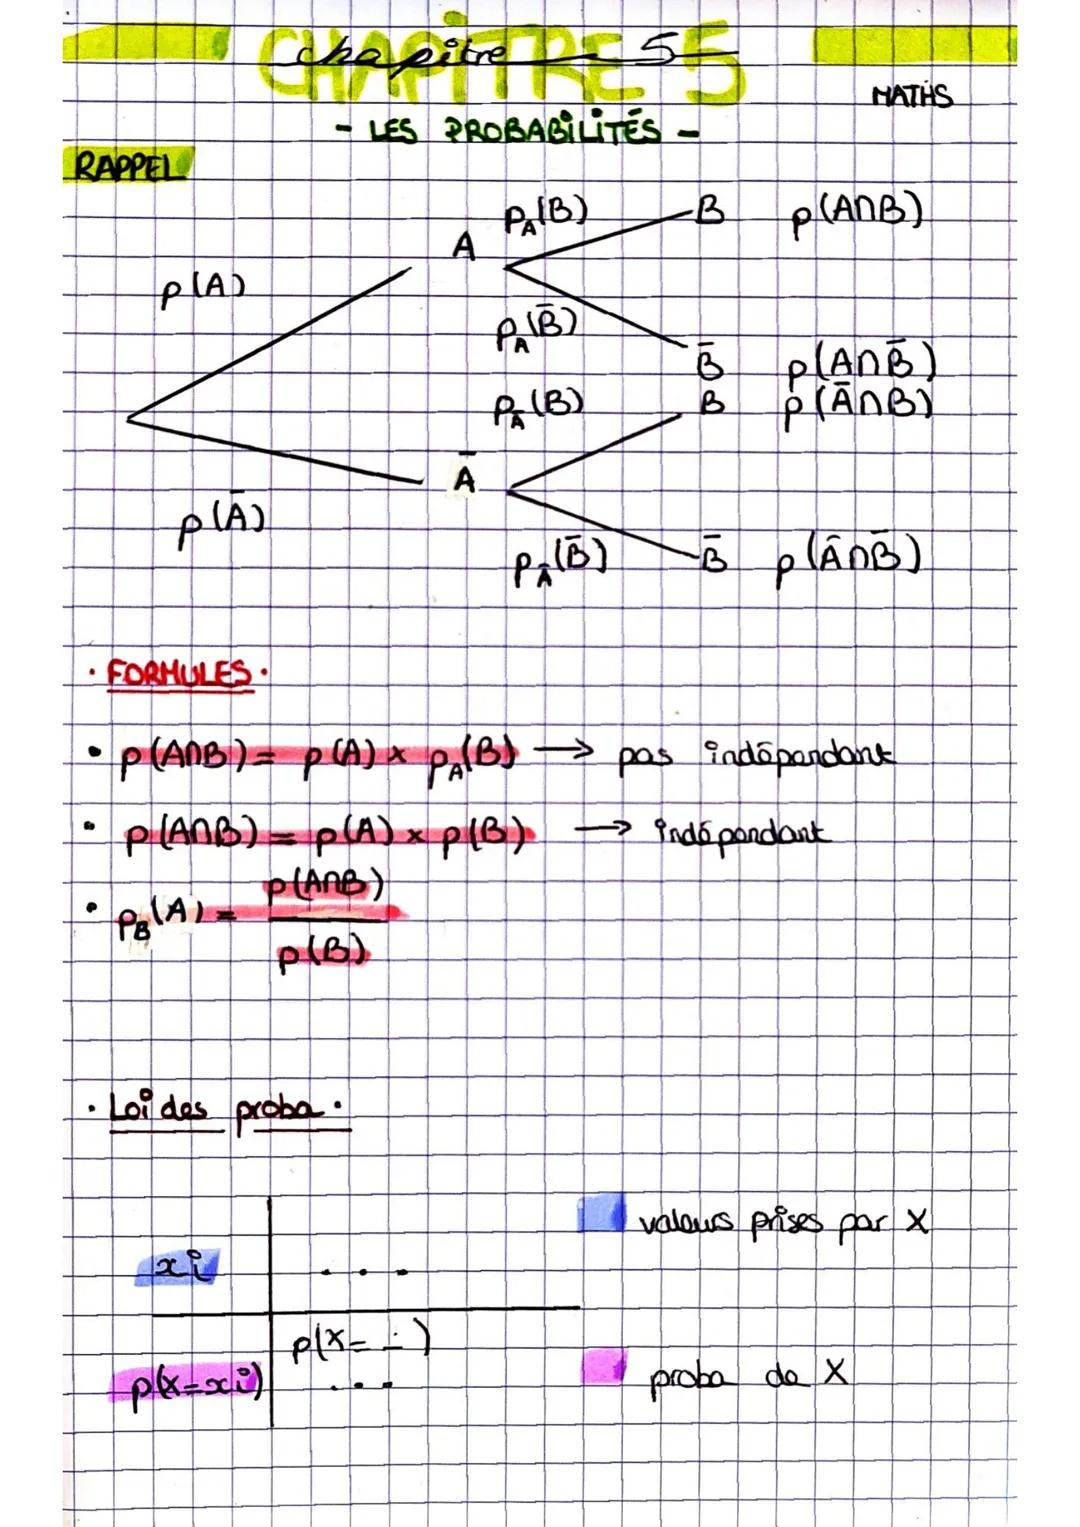 CHAPITRE 5
chapitre 5
MATHS
- LES PROBABILITÉS -
RAPPEL
p(A)
A
p_A(B)
B p(A∩B)
p_A(B̄)
B̄ p(A∩B̄)
p_Ā(B)
B p(Ā∩B)
p(Ā)
Ā
p_Ā(B̄)
B̄ p(Ā∩B̄)
· FORMULES ·
• p(A∩B) = p(A) × p_A(B) → pas indépendant
• p(A∩B) = p(A) × p(B) → indépendant
• p_B(A) = p(A∩B)
p(B)
· Loi des proba ·
valeurs prises par X
xi ...
p(X= ∸)
p(X=xi) ...
proba de X